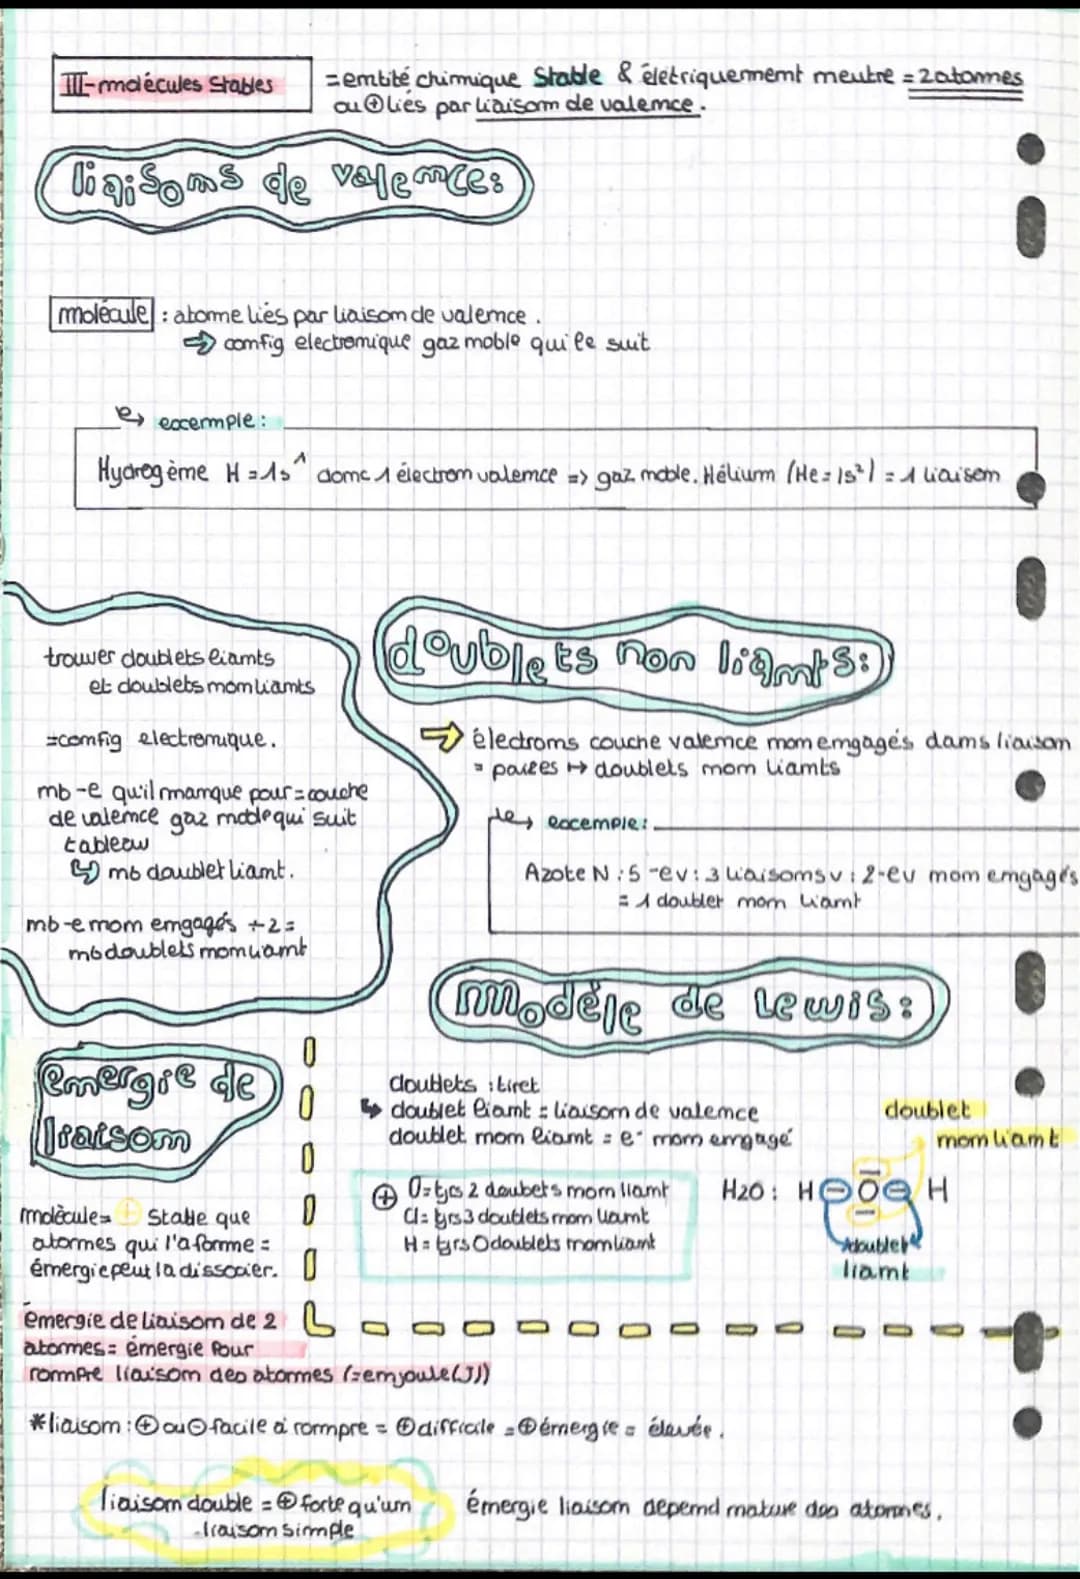 III-molécules Stables
= entité chimique Stable & életriquement neutre = 2 atomes
ou ⊕ liés par liaison de valence.
liaisons de valence:
molécule : atome liés par liaison de valence.
⇒ config electronique gaz noble qui le suit
↳ exemple :
Hydrogène H = 1s¹ donc 1 électron valence => gaz noble. Hélium (He = 1s²) = 1 liaison
trouver doublets liants
et doublets non liants
= config electronique.
nb -e qu'il manque pour = couche
de valence gaz noble qui suit
tableau
↳ nb doublet liant.
nb -e non engagés ÷ 2 =
nb doublets non liant
doublets non liants:
⇒ électrons couche valence non engagés dans liaison
= paires ↦ doublets non liants
↳ exemple:
Azote N : 5 -ev : 3 liaisons v : 2 -ev non engagés
= 1 doublet non liant
modèle de Lewis:
doublets : tiret
↳ doublet liant = liaison de valence
doublet non liant = e⁻ non engagé
⊕ O = tjrs 2 doubets non liant
Cl = tjrs 3 doublets non liant
H = tjrs 0 doublets non liant
doublet
non liant
H2O : H O H
doublet
liant
energie de
liaison
molècule = + Stable que
atomes qui l'a forme =
énergie peut la dissocier.
énergie de liaison de 2
atomes = énergie pour
rompre liaison des atomes (= en joule (J))
*liaison : ⊕ ou ⊖ facile à rompre = ⊕ difficile = ⊕ énergie = élevée.
liaison double = ⊕ forte qu'un
liaison simple
énergie liaison depend nature des atomes.